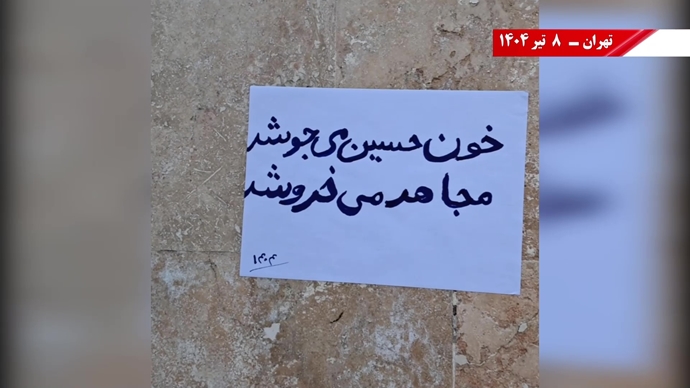 تهران ـ ۸ تیر ۱۴۰۴
خون حسین می جوشد
مجاهد می خروشد